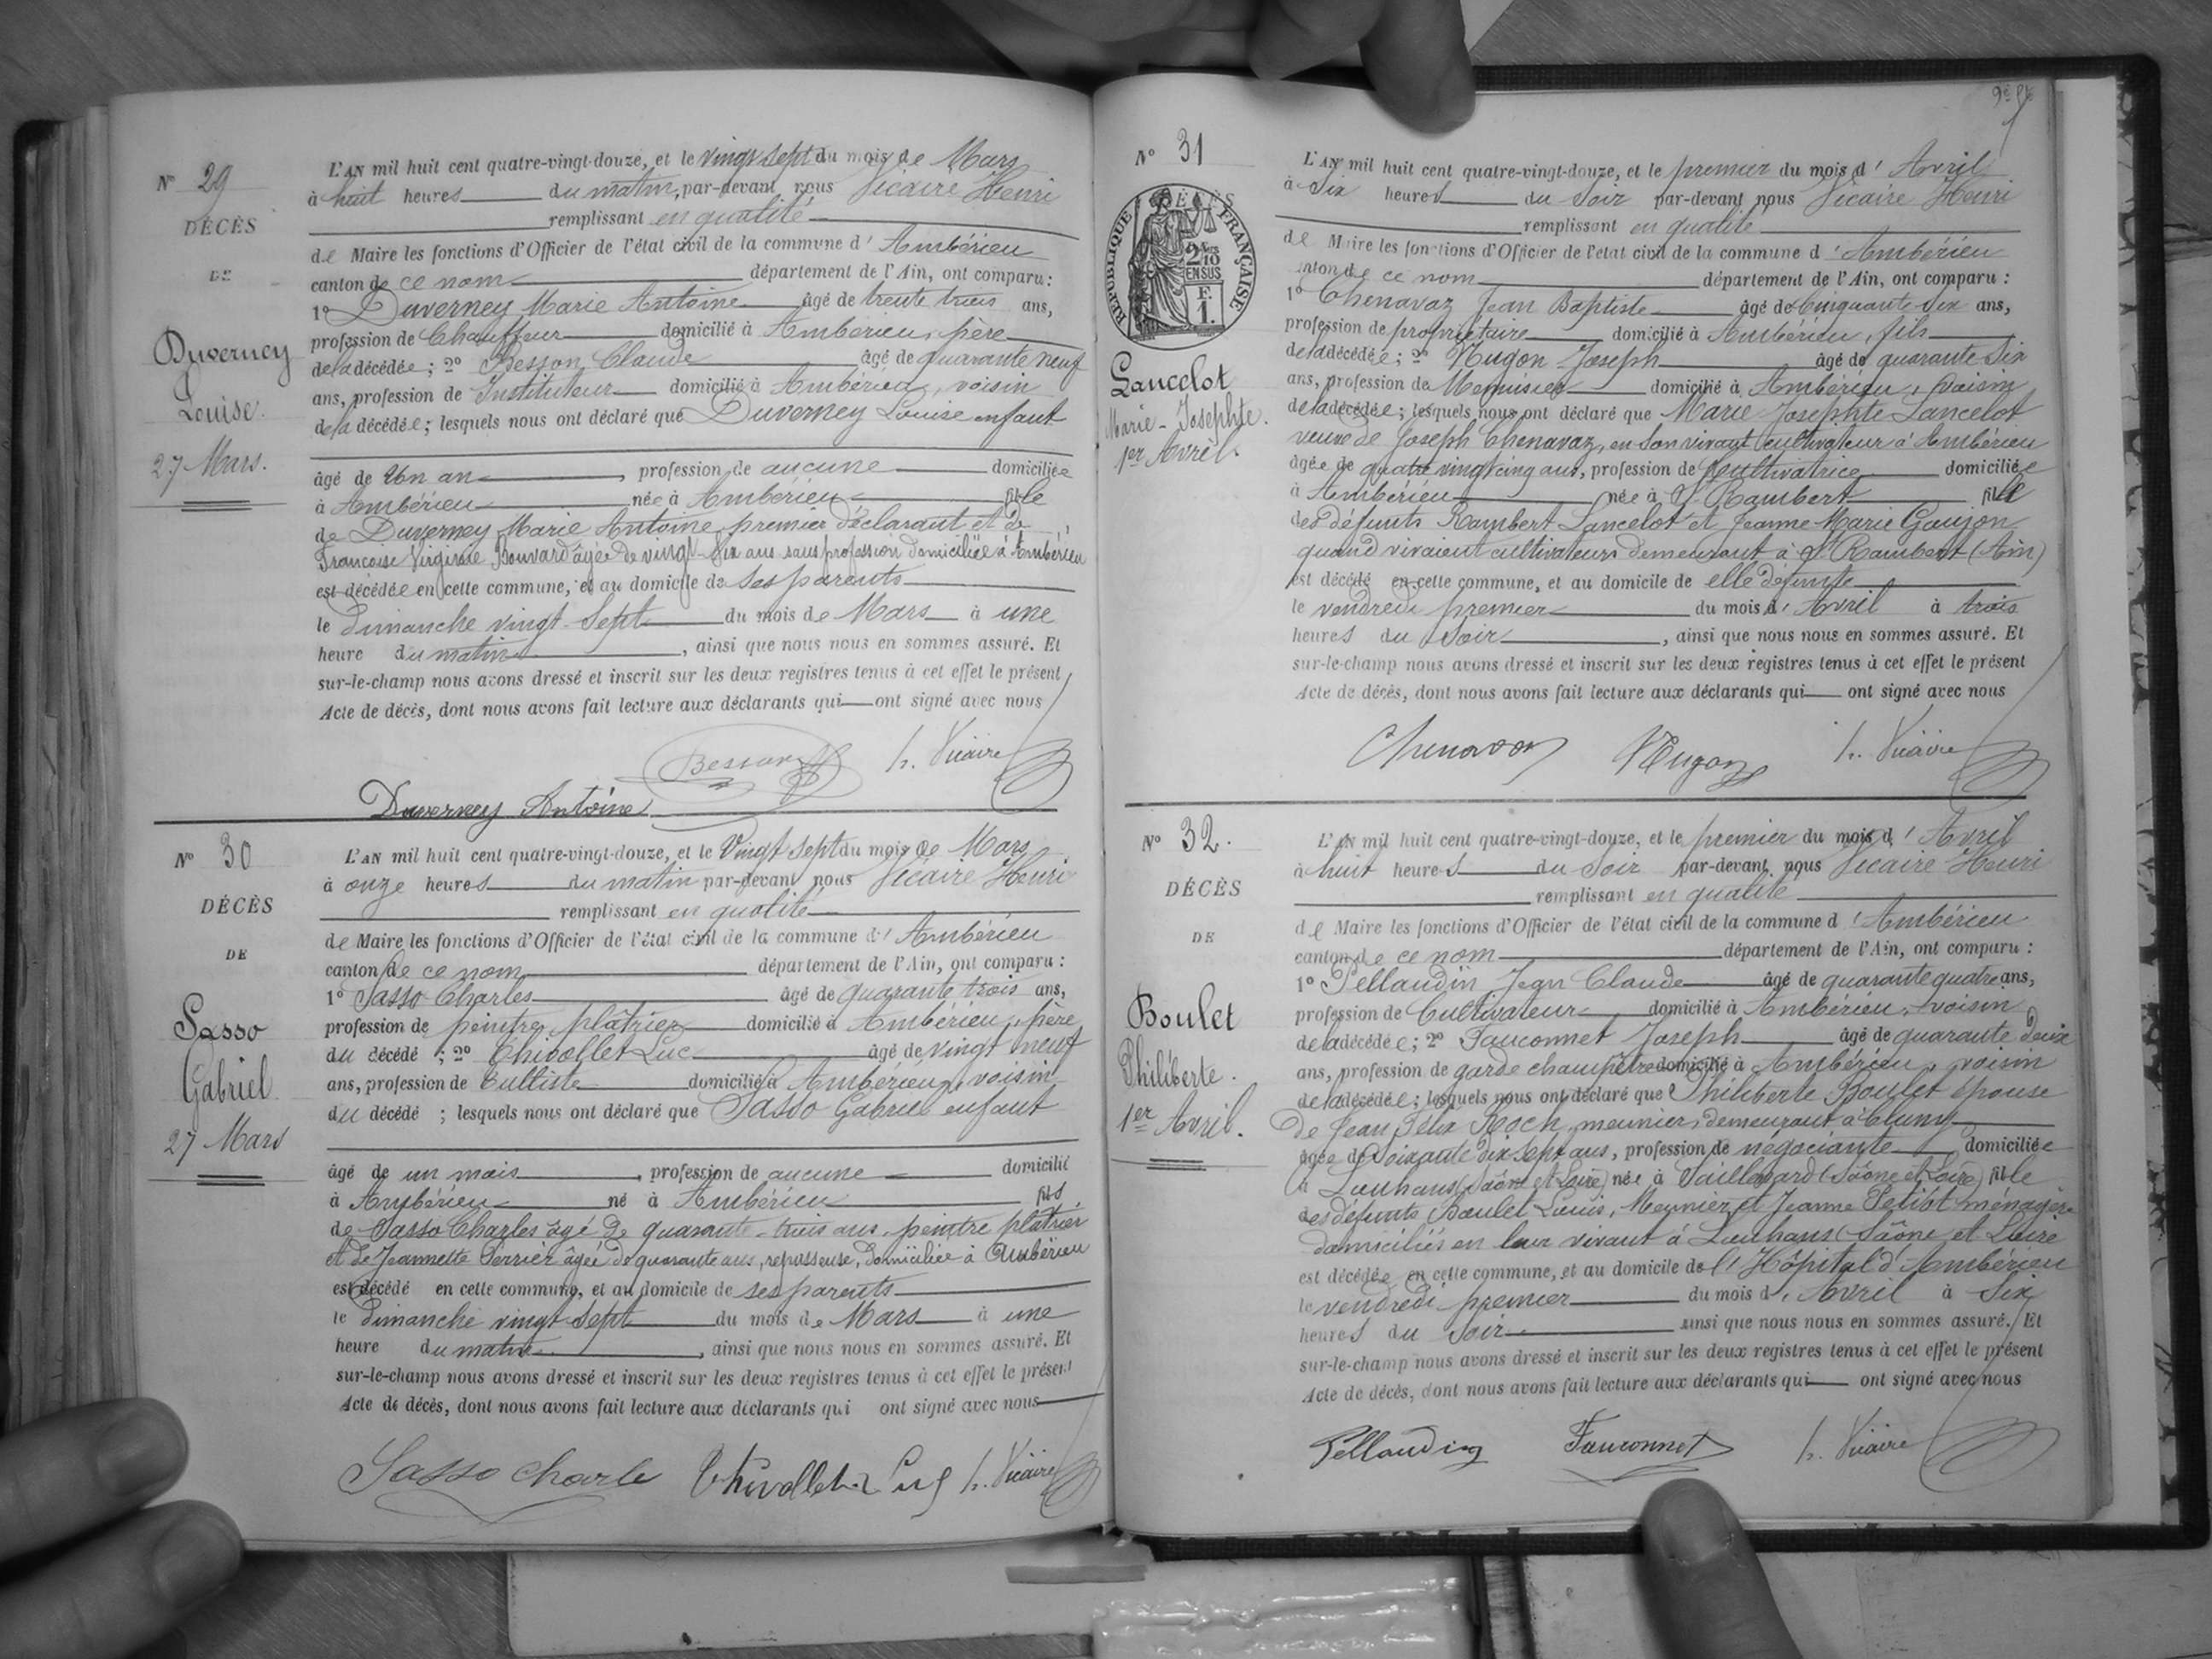 N° 29
DÉCÈS
DE
Duverney
Louise.
27 Mars.
L'AN mil huit cent quatre-vingt-douze, et le vingt sept du mois de Mars
à huit heures du matin, par-devant nous Vicaire Henri
remplissant en qualité
de Maire les fonctions d'Officier de l'état civil de la commune d' Ambérieu
canton de ce nom département de l'Ain, ont comparu :
1° Duverney Marie Antoine âgé de trente trois ans,
profession de Chauffeur domicilié à Ambérieu, père
de la décédée ; 2° Besson Claude âgé de quarante neuf
ans, profession de Instituteur domicilié à Ambérieu, voisin
de la décédée ; lesquels nous ont déclaré que Duverney Louise enfant
âgé de Un an, profession de aucune domiciliée
à Ambérieu née à Ambérieu fille
de Duverney Marie Antoine, premier déclarant et de
Françoise Virginie Bouvard âgée de vingt-six ans sans profession domiciliée à Ambérieu
est décédée en cette commune, et au domicile de ses parents
le dimanche vingt-sept du mois de Mars à une
heure du matin, ainsi que nous nous en sommes assuré. Et
sur-le-champ nous avons dressé et inscrit sur les deux registres tenus à cet effet le présent
Acte de décès, dont nous avons fait lecture aux déclarants qui ont signé avec nous
Besson h. Vicaire
Duverney Antoine
N° 30
DÉCÈS
DE
Sasso
Gabriel
27 Mars
L'AN mil huit cent quatre-vingt-douze, et le Vingt sept du mois de Mars
à onze heures du matin par-devant nous Vicaire Henri
remplissant en qualité
de Maire les fonctions d'Officier de l'état civil de la commune d' Ambérieu
canton de ce nom département de l'Ain, ont comparu :
1° Sasso Charles âgé de quarante trois ans,
profession de peintre plâtrier domicilié à Ambérieu, père
du décédé ; 2° Thivollet Luc âgé de vingt neuf
ans, profession de domicilié à Ambérieu, voisin
du décédé ; lesquels nous ont déclaré que Sasso Gabriel enfant
âgé de un mois, profession de aucune domicilié
à Ambérieu né à Ambérieu fils
de Sasso Charles âgé de quarante-trois ans, peintre plâtrier
et de Jeannette Perrier âgée de quarante ans, repasseuse, domiciliée à Ambérieu
est décédé en cette commune, et au domicile de ses parents
le dimanche vingt-sept du mois de Mars à une
heure du matin, ainsi que nous nous en sommes assuré. Et
sur-le-champ nous avons dressé et inscrit sur les deux registres tenus à cet effet le présent
Acte de décès, dont nous avons fait lecture aux déclarants qui ont signé avec nous
Sasso Charle Thivollet Luc h. Vicaire
N° 31
RÉPUBLIQUE FRANÇAISE
2/10
EN SUS
F.
1.
Lancelot
Marie-Josephte.
1er Avril.
L'AN mil huit cent quatre-vingt-douze, et le premier du mois d' Avril
à six heures du soir par-devant nous Vicaire Henri
remplissant en qualité
de Maire les fonctions d'Officier de l'état civil de la commune d' Ambérieu
canton de ce nom département de l'Ain, ont comparu :
1° Chenavaz Jean Baptiste âgé de Cinquante-six ans,
profession de propriétaire domicilié à Ambérieu, fils
de la décédée ; 2° Nugon Joseph âgé de quarante six
ans, profession de Menuisier domicilié à Ambérieu, voisin
de la décédée ; lesquels nous ont déclaré que Marie Josephte Lancelot
veuve de Joseph Chenavaz, en son vivant cultivateur à Ambérieu
âgée de quatre vingt cinq ans, profession de Cultivatrice domiciliée
à Ambérieu née à St Rambert fille
des défunts Rambert Lancelot et Jeanne Marie Goujon
quand vivaient cultivateurs demeurant à St Rambert (Ain)
est décédé en cette commune, et au domicile de elle défunte
le vendredi premier du mois d' Avril à trois
heures du soir, ainsi que nous nous en sommes assuré. Et
sur-le-champ nous avons dressé et inscrit sur les deux registres tenus à cet effet le présent
Acte de décès, dont nous avons fait lecture aux déclarants qui ont signé avec nous
Nugon h. Vicaire
N° 32.
DÉCÈS
DE
Boulet
Philiberte.
1er Avril.
L'AN mil huit cent quatre-vingt-douze, et le premier du mois d' Avril
à huit heures du soir par-devant nous Vicaire Henri
remplissant en qualité
de Maire les fonctions d'Officier de l'état civil de la commune d' Ambérieu
canton de ce nom département de l'Ain, ont comparu :
1° Pellaudin Jean Claude âgé de quarante quatre ans,
profession de Cultivateur domicilié à Ambérieu, voisin
de la décédée ; 2° Fauconnet Joseph âgé de quarante deux
ans, profession de garde champêtre domicilié à Ambérieu, voisin
de la décédée ; lesquels nous ont déclaré que Philiberte Boulet épouse
de Jean Félix Roch, meunier, demeurant à Cluny
âgée de Soixante dix sept ans, profession de négociante domiciliée
à Louhans (Saône et Loire) née à Saillenard (Saône et Loire) fille
des défunts Boulet Louis, Meunier et Jeanne Petiot ménagère
domiciliés en leur vivant à Louhans (Saône et Loire
est décédée en cette commune, et au domicile de l'Hôpital d'Ambérieu
le vendredi premier du mois d' Avril à six
heures du soir ainsi que nous nous en sommes assuré. Et
sur-le-champ nous avons dressé et inscrit sur les deux registres tenus à cet effet le présent
Acte de décès, dont nous avons fait lecture aux déclarants qui ont signé avec nous
Pellaudin Fauconnet h. Vicaire